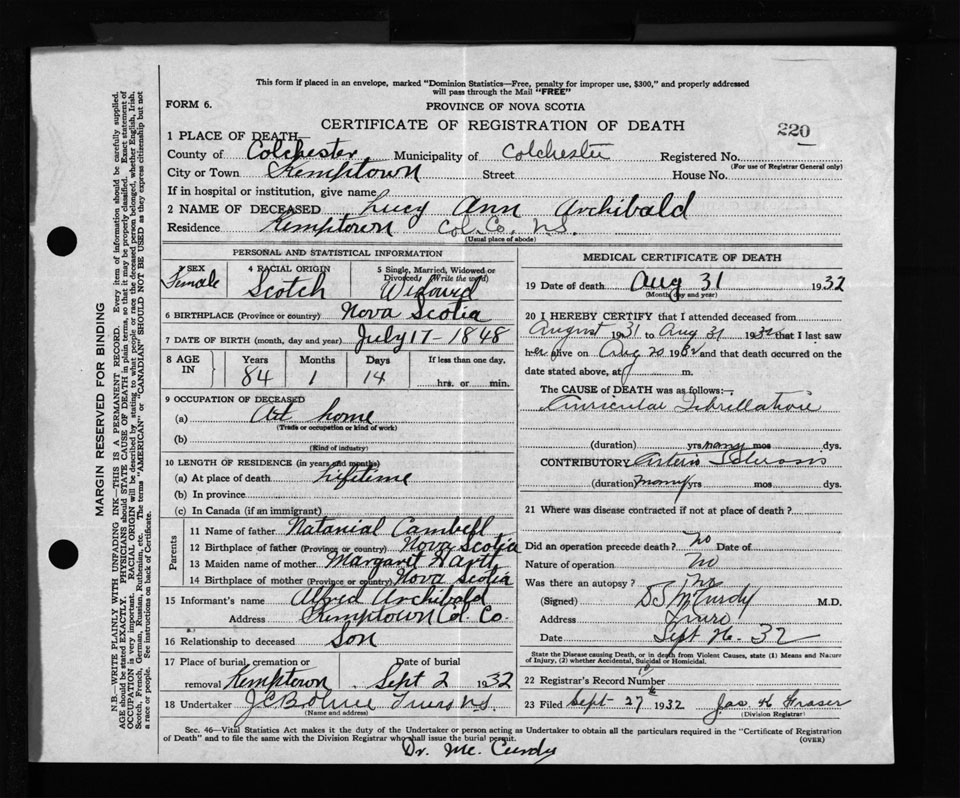 This form if placed in an envelope, marked "Dominion Statistics—Free, penalty for improper use, $300," and properly addressed
will pass through the Mail "FREE"
FORM 6.
PROVINCE OF NOVA SCOTIA
CERTIFICATE OF REGISTRATION OF DEATH
220
1 PLACE OF DEATH—
County of Colchester Municipality of Colchester Registered No.
(For use of Registrar General only)
City or Town Kemptown Street House No.
If in hospital or institution, give name
2 NAME OF DECEASED Lucy Ann Archibald
Residence Kemptown Col. Co. N.S.
(Usual place of abode)
PERSONAL AND STATISTICAL INFORMATION
SEX Female
4 RACIAL ORIGIN Scotch
5 Single, Married, Widowed or Divorced (Write the word) Widowed
6 BIRTHPLACE (Province or country) Nova Scotia
7 DATE OF BIRTH (month, day and year) July 17 - 1848
8 AGE IN Years 84 Months 1 Days 14 If less than one day, hrs. or min.
9 OCCUPATION OF DECEASED
(a) At home
(Trade or occupation or kind of work)
(b)
(Kind of industry)
10 LENGTH OF RESIDENCE (in years and months)
(a) At place of death Lifetime
(b) In province
(c) In Canada (if an immigrant)
Parents
11 Name of father Natanial Cambell
12 Birthplace of father (Province or country) Nova Scotia
13 Maiden name of mother Margaret Hartt
14 Birthplace of mother (Province or country) Nova Scotia
15 Informant's name Alfred Archibald
Address Kemptown Col. Co.
16 Relationship to deceased Son
17 Place of burial, cremation or removal Kemptown Date of burial Sept 2 1932
18 Undertaker N.S.
(Name and address)
MEDICAL CERTIFICATE OF DEATH
19 Date of death Aug 31 1932
(Month, day and year)
20 I HEREBY CERTIFY that I attended deceased from
August 1931 to Aug 31 1932 that I last saw
her alive on Aug 20 1932 and that death occurred on the
date stated above, at m.
The CAUSE of DEATH was as follows:—
Auricular Fibrillation
(duration) yrs many mos dys.
CONTRIBUTORY Arterio Sclerosis
(duration many yrs mos dys.
21 Where was disease contracted if not at place of death?
Did an operation precede death? no Date of
Nature of operation no
Was there an autopsy? no
(Signed) McCurdy M.D.
Address Truro
Date Sept 26. 32
State the Disease causing Death, or in death from Violent Causes, state (1) Means and Nature
of Injury, (2) whether Accidental, Suicidal or Homicidal.
22 Registrar's Record Number
23 Filed Sept 27 1932 Jas K Fraser
(Division Registrar)
Sec. 46—Vital Statistics Act makes it the duty of the Undertaker or person acting as Undertaker to obtain all the particulars required in the "Certificate of Registration
of Death" and to file the same with the Division Registrar who shall issue the burial permit.
(OVER)
Dr. Mc. Curdy
MARGIN RESERVED FOR BINDING
N.B.—WRITE PLAINLY WITH UNFADING INK—THIS IS A PERMANENT RECORD. Every item of information should be carefully supplied.
AGE should be stated EXACTLY. PHYSICIANS should STATE CAUSE OF DEATH in plain terms, so that it may be properly classified. Exact statement of
OCCUPATION is very important. RACIAL ORIGIN will be described by stating to what people or race the deceased person belonged, whether English, Irish,
Scotch, French, German, Russian, Ruthenian, etc. The terms "AMERICAN" or "CANADIAN" SHOULD NOT BE USED as they express citizenship but not
a race or people. See instructions on back of Certificate.